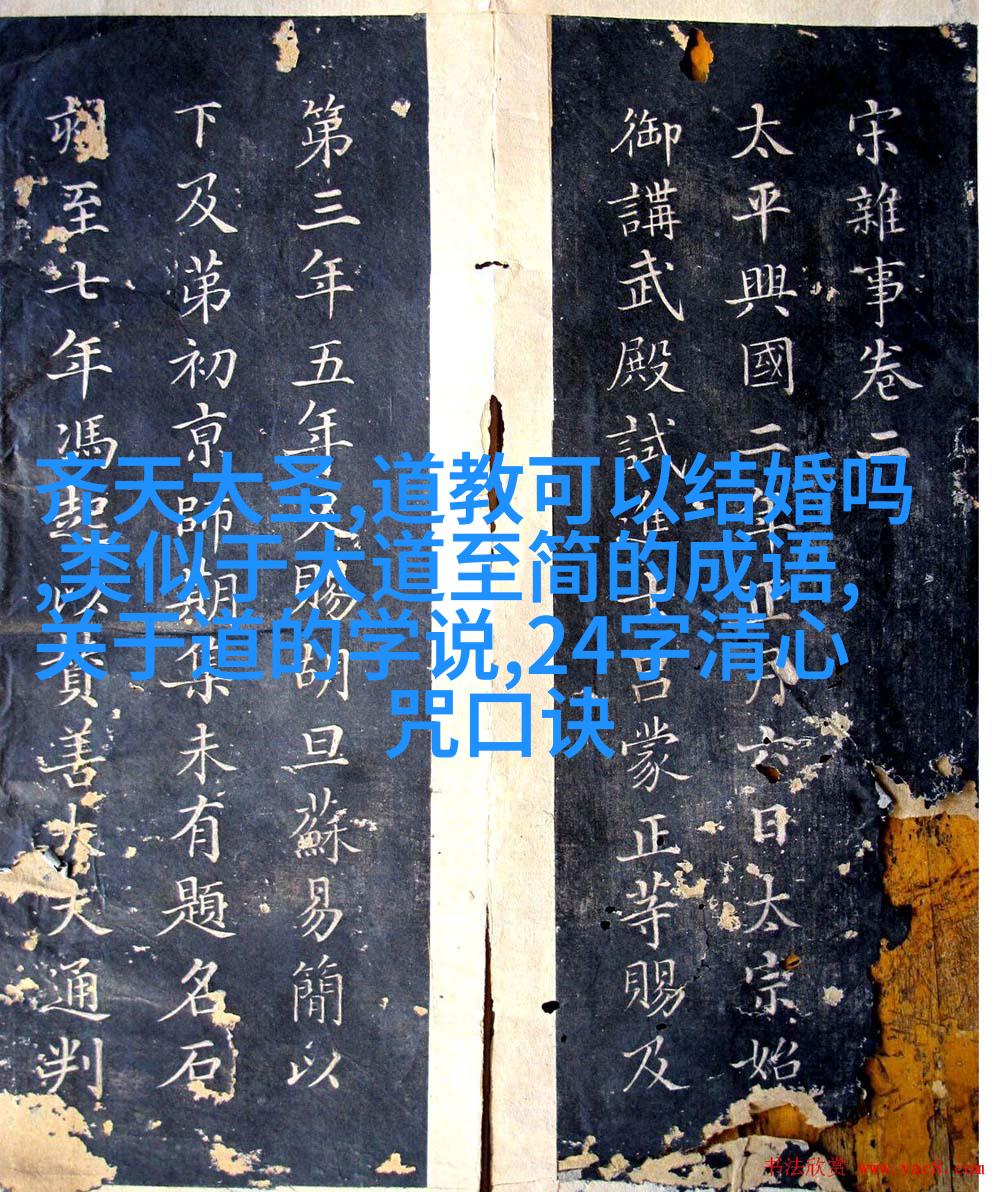 宋雜事卷二
太平興國二年正月六日太宗始
御講武殿試進士呂蒙正等賜及
第三年五年又賜胡旦蘇易簡以
下及苐初京師期集未有題名石
至七年馮起以善大夫通判
齐天大圣,道教可以结婚吗
,类似于大道至简的成语,
关于道的学说,24字清心
咒口诀
书法欣赏 www.yac8.com